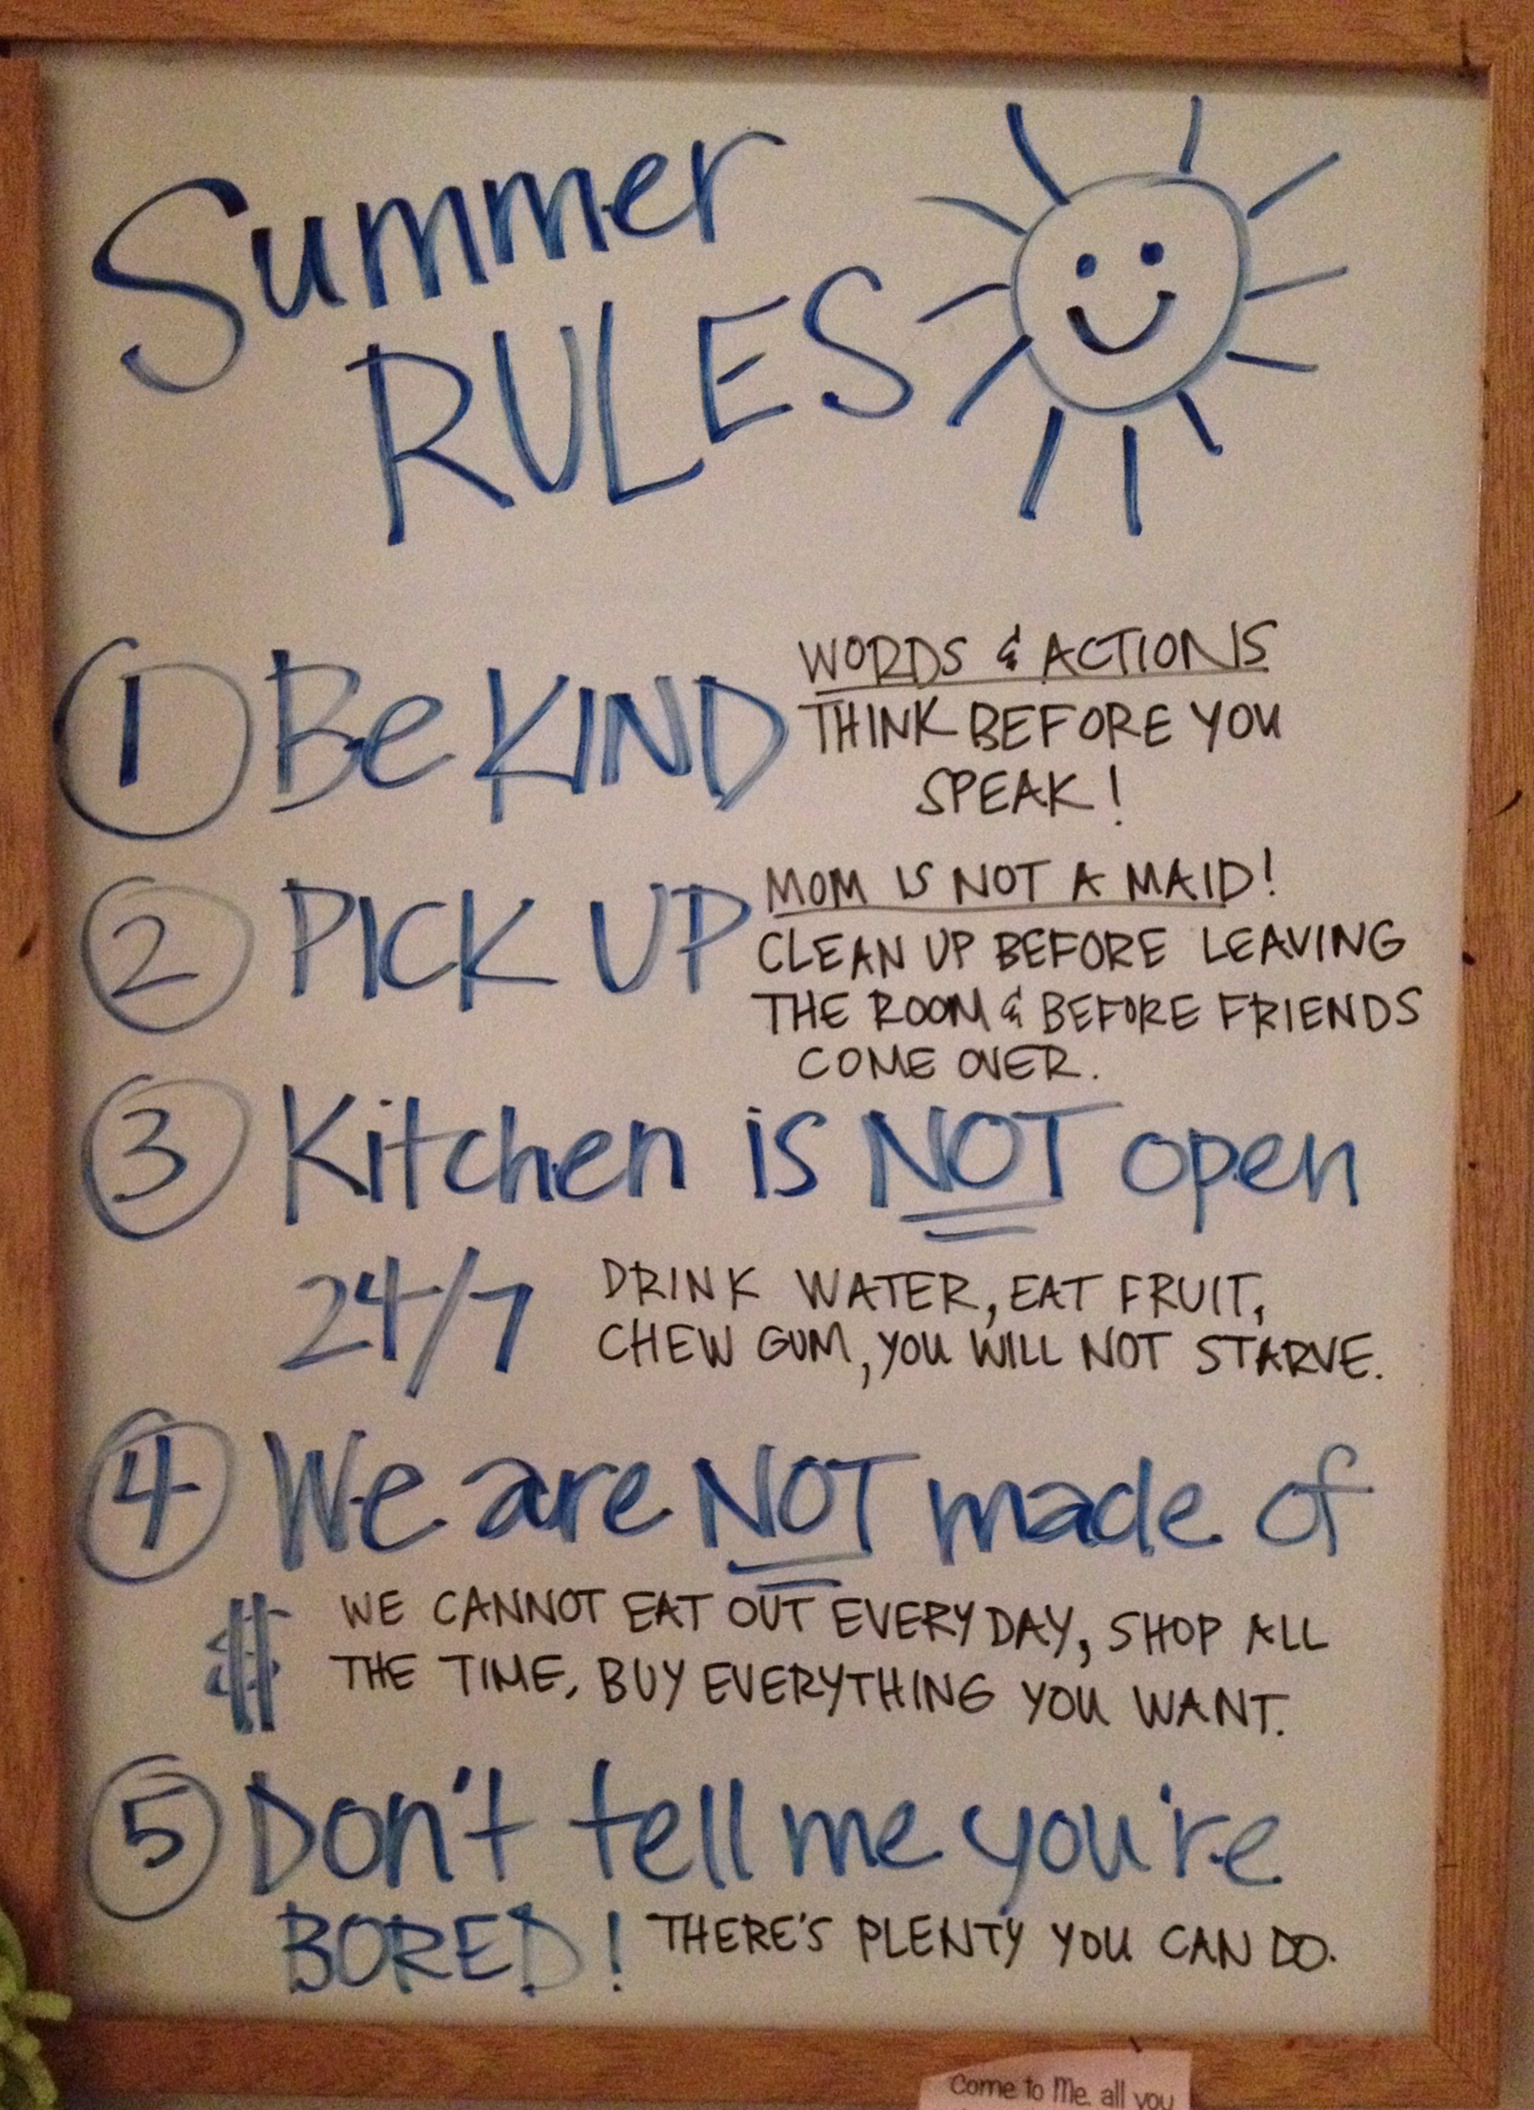 Summer
RULES
1 Be KIND
WORDS & ACTIONS
THINK BEFORE YOU
SPEAK!
2 PICK UP
MOM IS NOT A MAID!
CLEAN UP BEFORE LEAVING
THE ROOM & BEFORE FRIENDS
COME OVER.
3 Kitchen is NOT open
24/7
DRINK WATER, EAT FRUIT,
CHEW GUM, YOU WILL NOT STARVE.
4 We are NOT made of
$
WE CANNOT EAT OUT EVERYDAY, SHOP ALL
THE TIME, BUY EVERYTHING YOU WANT.
5 Don't tell me you're
BORED! THERE'S PLENTY YOU CAN DO.
Come to Me, all you